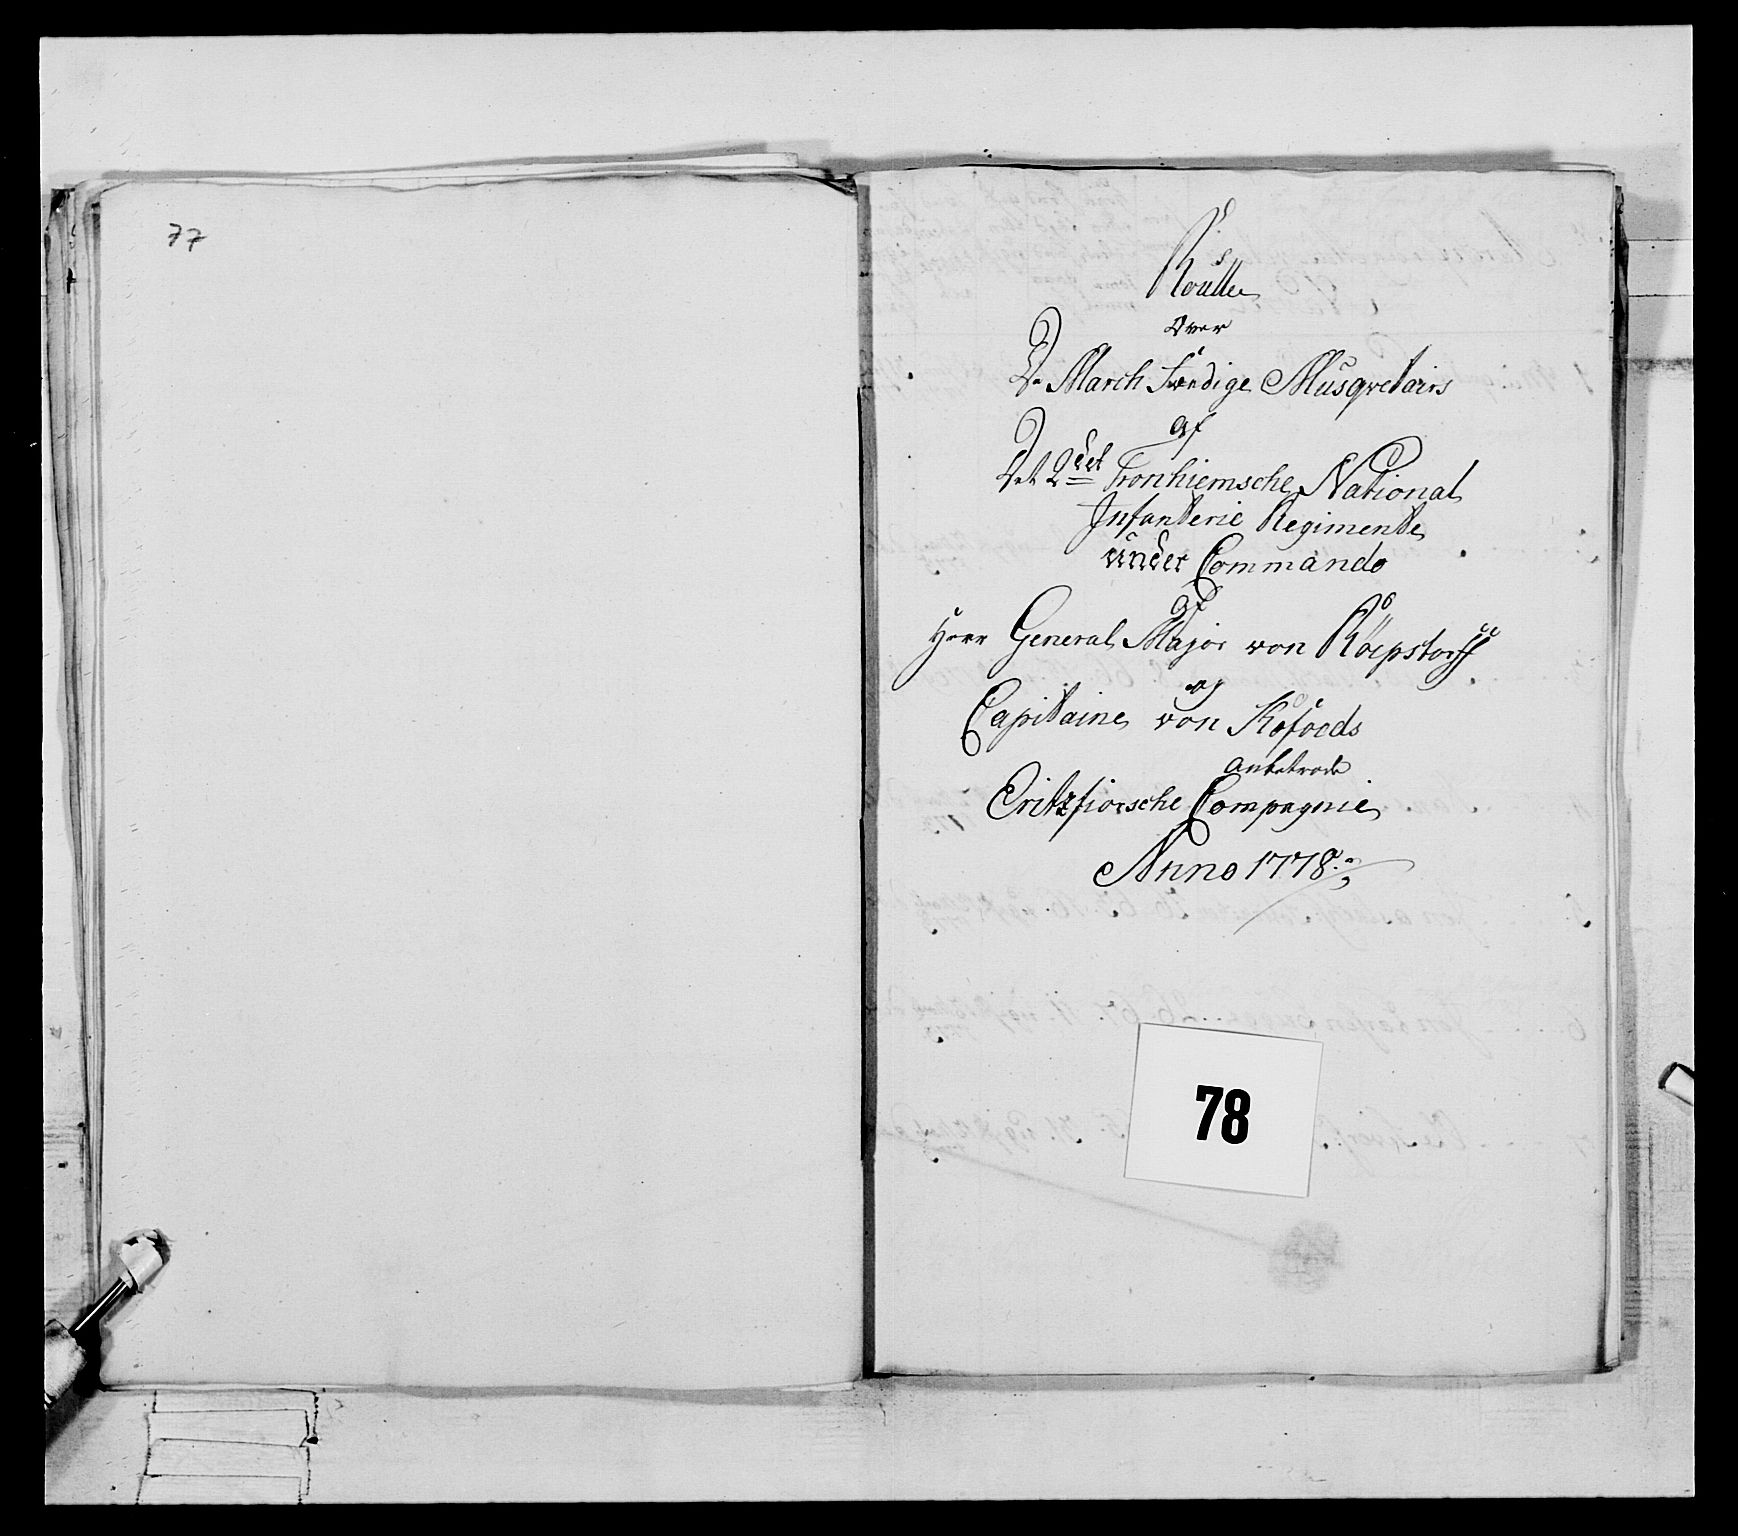 77
Roulle
Over
De March Færdige Musqvetairs
af
Det 2det Tronhiemsche National
Infanterie Regimente
under Commando
af
Herr General Major von Röepstorff
og
Capitaine von Kofoeds
anbetroede
Öritzfiorsche Compagnie
Anno 1778
78